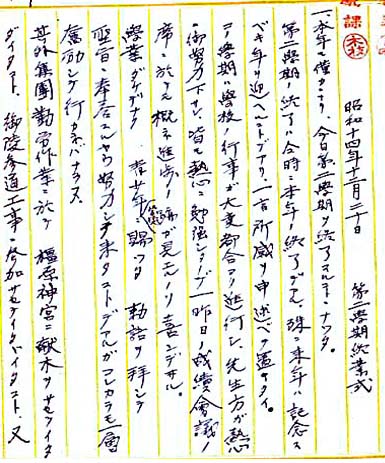 昭和十四年十二月二十日 第二學期終業式
一、本年モ僅カトナリ、今日第二學期ヲ終了スルコトニナツタ。
第二學期ノ終了ハ今時ニ本年ノ終了デアル、殊ニ来年ハ記念ス
ベキ年ヲ迎ヘルトデアリ、一言所感ヲ申述ベテ置キタイ。
コノ學期ハ學校ノ行事ガ大変都合ヨク進行シ、先生方ガ熱
御努力下サレ、皆モ熱心ニ勉強シタノデ一昨日ノ成績會議ノ
席ニ於テモ概ネ進歩ノ跡ガ見エルノヲ喜ンデヰル。
學業ダケデナク 青少年ニ賜ツタ 勅語ヲ拝シテ
聖旨ニ奉答スルヤウ努力シテ来タコトデアルガコレカラモ一層
奮励シテ行カネバナラヌ。
其外集團勤労作業ニ於テ 橿原神宮ニ献木ヲサセテイタ
ダイタコト、御陵参道工事ニ参加サセテイタダイタコト、又